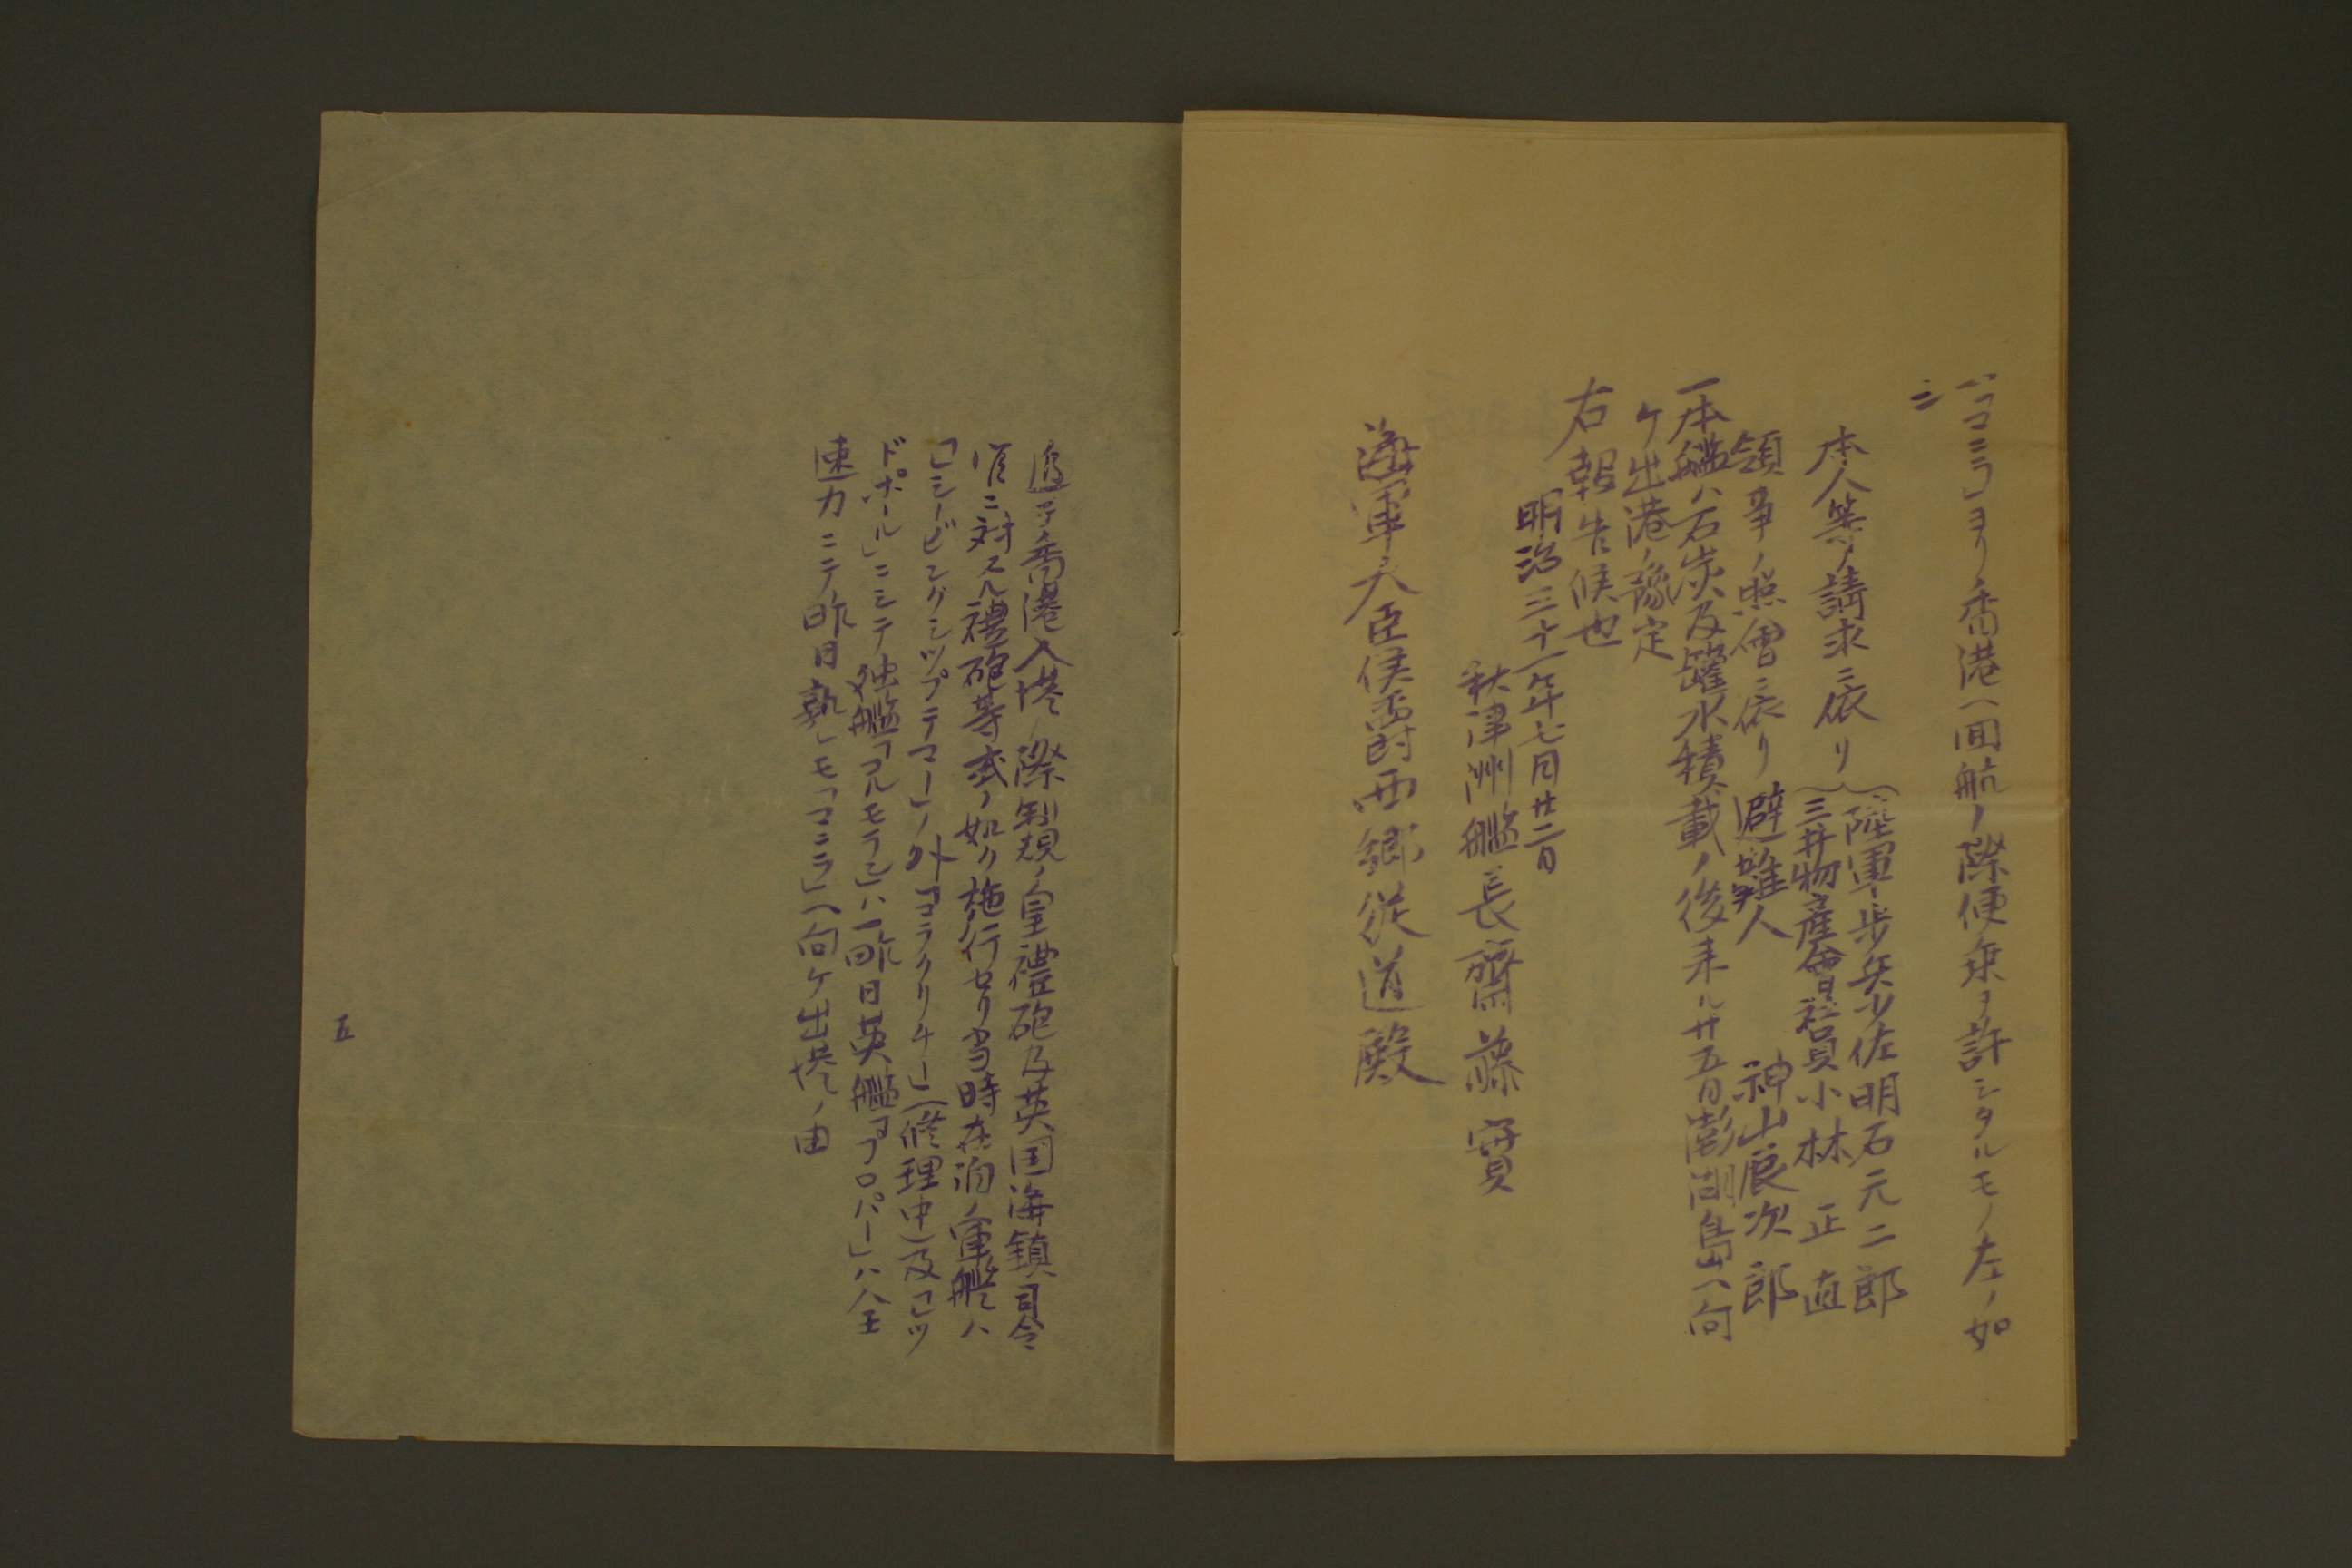 一「マニラ」ヨリ香港ヘ回航ノ際便乗ヲ許シタルモノ左ノ如
シ
陸軍歩兵少佐明石元二郎
本人等ノ請求ニ依リ
三井物産會社員小林正直
領事ノ照會ニ依リ 避難人 神山辰次郎
一本艦ハ石炭及罐水積載ノ後来ル廿五日澎湖島ヘ向
ケ出港ノ豫定
右報告候也
明治三十一年七月廿二日
秋津洲艦長齋藤實
海軍大臣侯爵西郷従道殿
追テ香港入港ノ際制規ノ皇禮砲及英国海鎮司令
官ニ対スル禮砲等式ノ如ク施行セリ当時在泊ノ軍艦ハ
「レシービングシツプテマー」ノ外「コラクリチー」(修理中)及「レツ
ドポール」ニシテ独艦「コルモラン」ハ一昨日英艦「プロパー」ハ全
速力ニテ昨日孰レモ「マニラ」ヘ向ケ出港ノ由
五